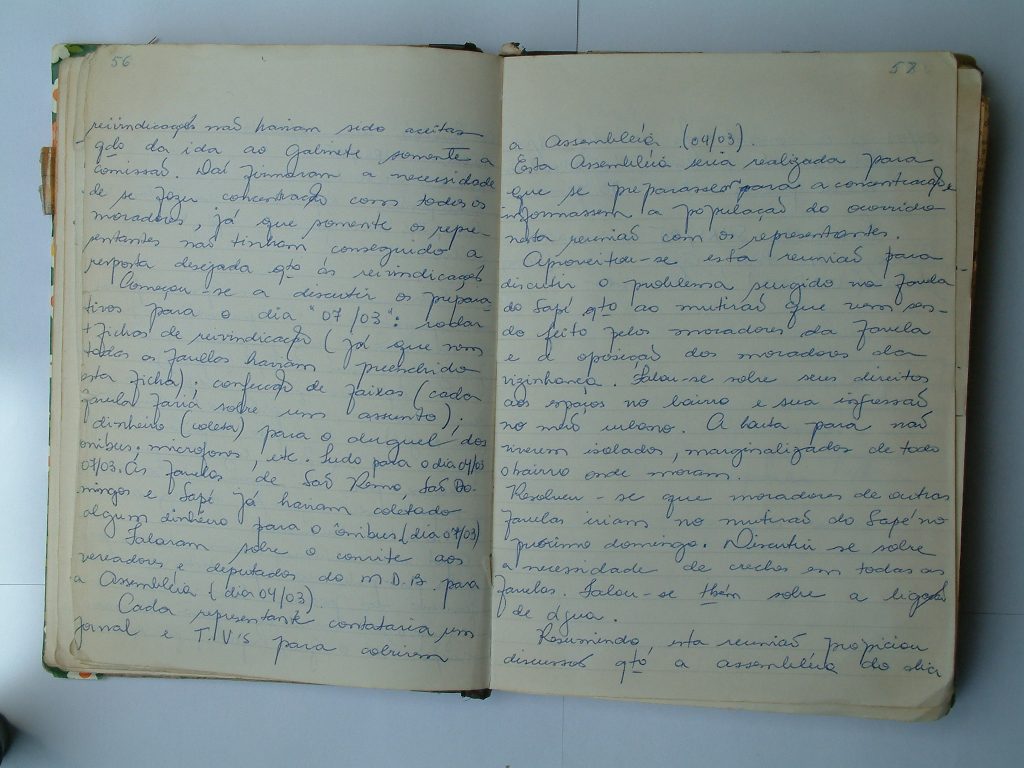 56
reivindicações não haviam sido aceitas
qdo da ida ao Gabinete somente a
comissão. Daí firmaram a necessidade
de se fazer concentração com todos os
moradores, já que somente os repre-
sentantes não tinham conseguido a
resposta desejada qto às reivindicações
Começou-se a discutir os prepara
tivos para o dia "07/03": rodar
+ fichas de reivindicação (já que nem
todas as favelas haviam preenchido
esta ficha); confecção de faixas (cada
favela faria sobre um assunto);
dinheiro (coleta) para o aluguel dos
ônibus, microfones, etc. Tudo para o dia 04/03
07/03. As favelas de São Remo, São Do-
mingos e Sapé já haviam coletado
algum dinheiro para o ônibus (dia 07/03)
Falaram sobre o convite aos
vereadores e deputados do M.D.B. para
a Assembléia (dia 04/03)
Cada representante contataria um
jornal e T.V's para cobrirem
57
a Assembléia (04/03).
Esta Assembléia seria realizada para
que se preparasse para a concentração e
informassem a população do ocorrido
nesta reunião com os representantes.
Aproveitou-se esta reunião para
discutir o problema surgido na favela
do Sapé qto ao mutirão que vem sen-
do feito pelos moradores da favela
e a oposição dos moradores da
vizinhança. Falou-se sobre seus direitos
aos espaços no bairro e sua ingressão
no meio urbano. A luta para não
viverem isolados, marginalizados de todo
o bairro onde moram.
Resolveu-se que moradores de outras
favelas iriam no mutirão do Sapé no
próximo domingo. Discutiu se sobre
a necessidade de creches em todas as
favelas. Falou-se tbém sobre a ligação
de água.
Resumindo, esta reunião propiciou
discussões qto a assembléia do dia